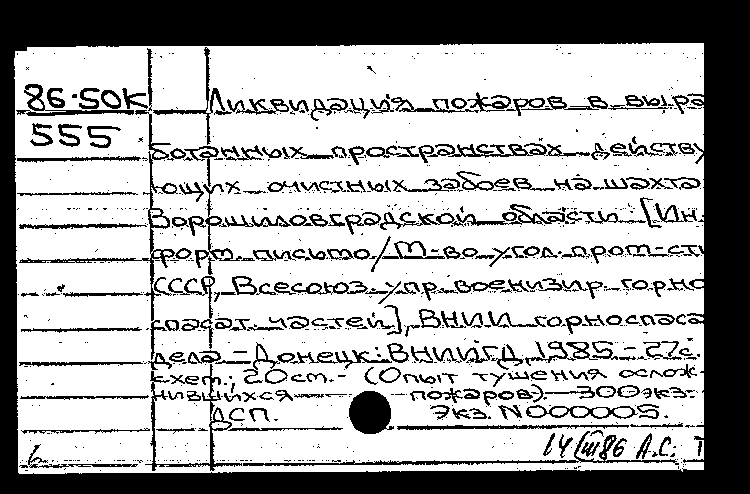 86-50К Ликвидация пожаров в выра
555
ботанных пространствах действу
ющих очистных забоев на шахта
Ворошиловградской области [Ин.
форм. письмо/М-во угол. пром-сти
СССР, Всесоюз. упр. военизир. горно
спасат. частей], ВНИИ горноспаса
дела - Донецк: ВНИИГД, 1985 - 27с.
схем.; 20см. - (Опыт тушения ослож-
нившихся пожаров) - 300экз.
ДСП. Экз. N000005.
14 III 86 А.С. Т